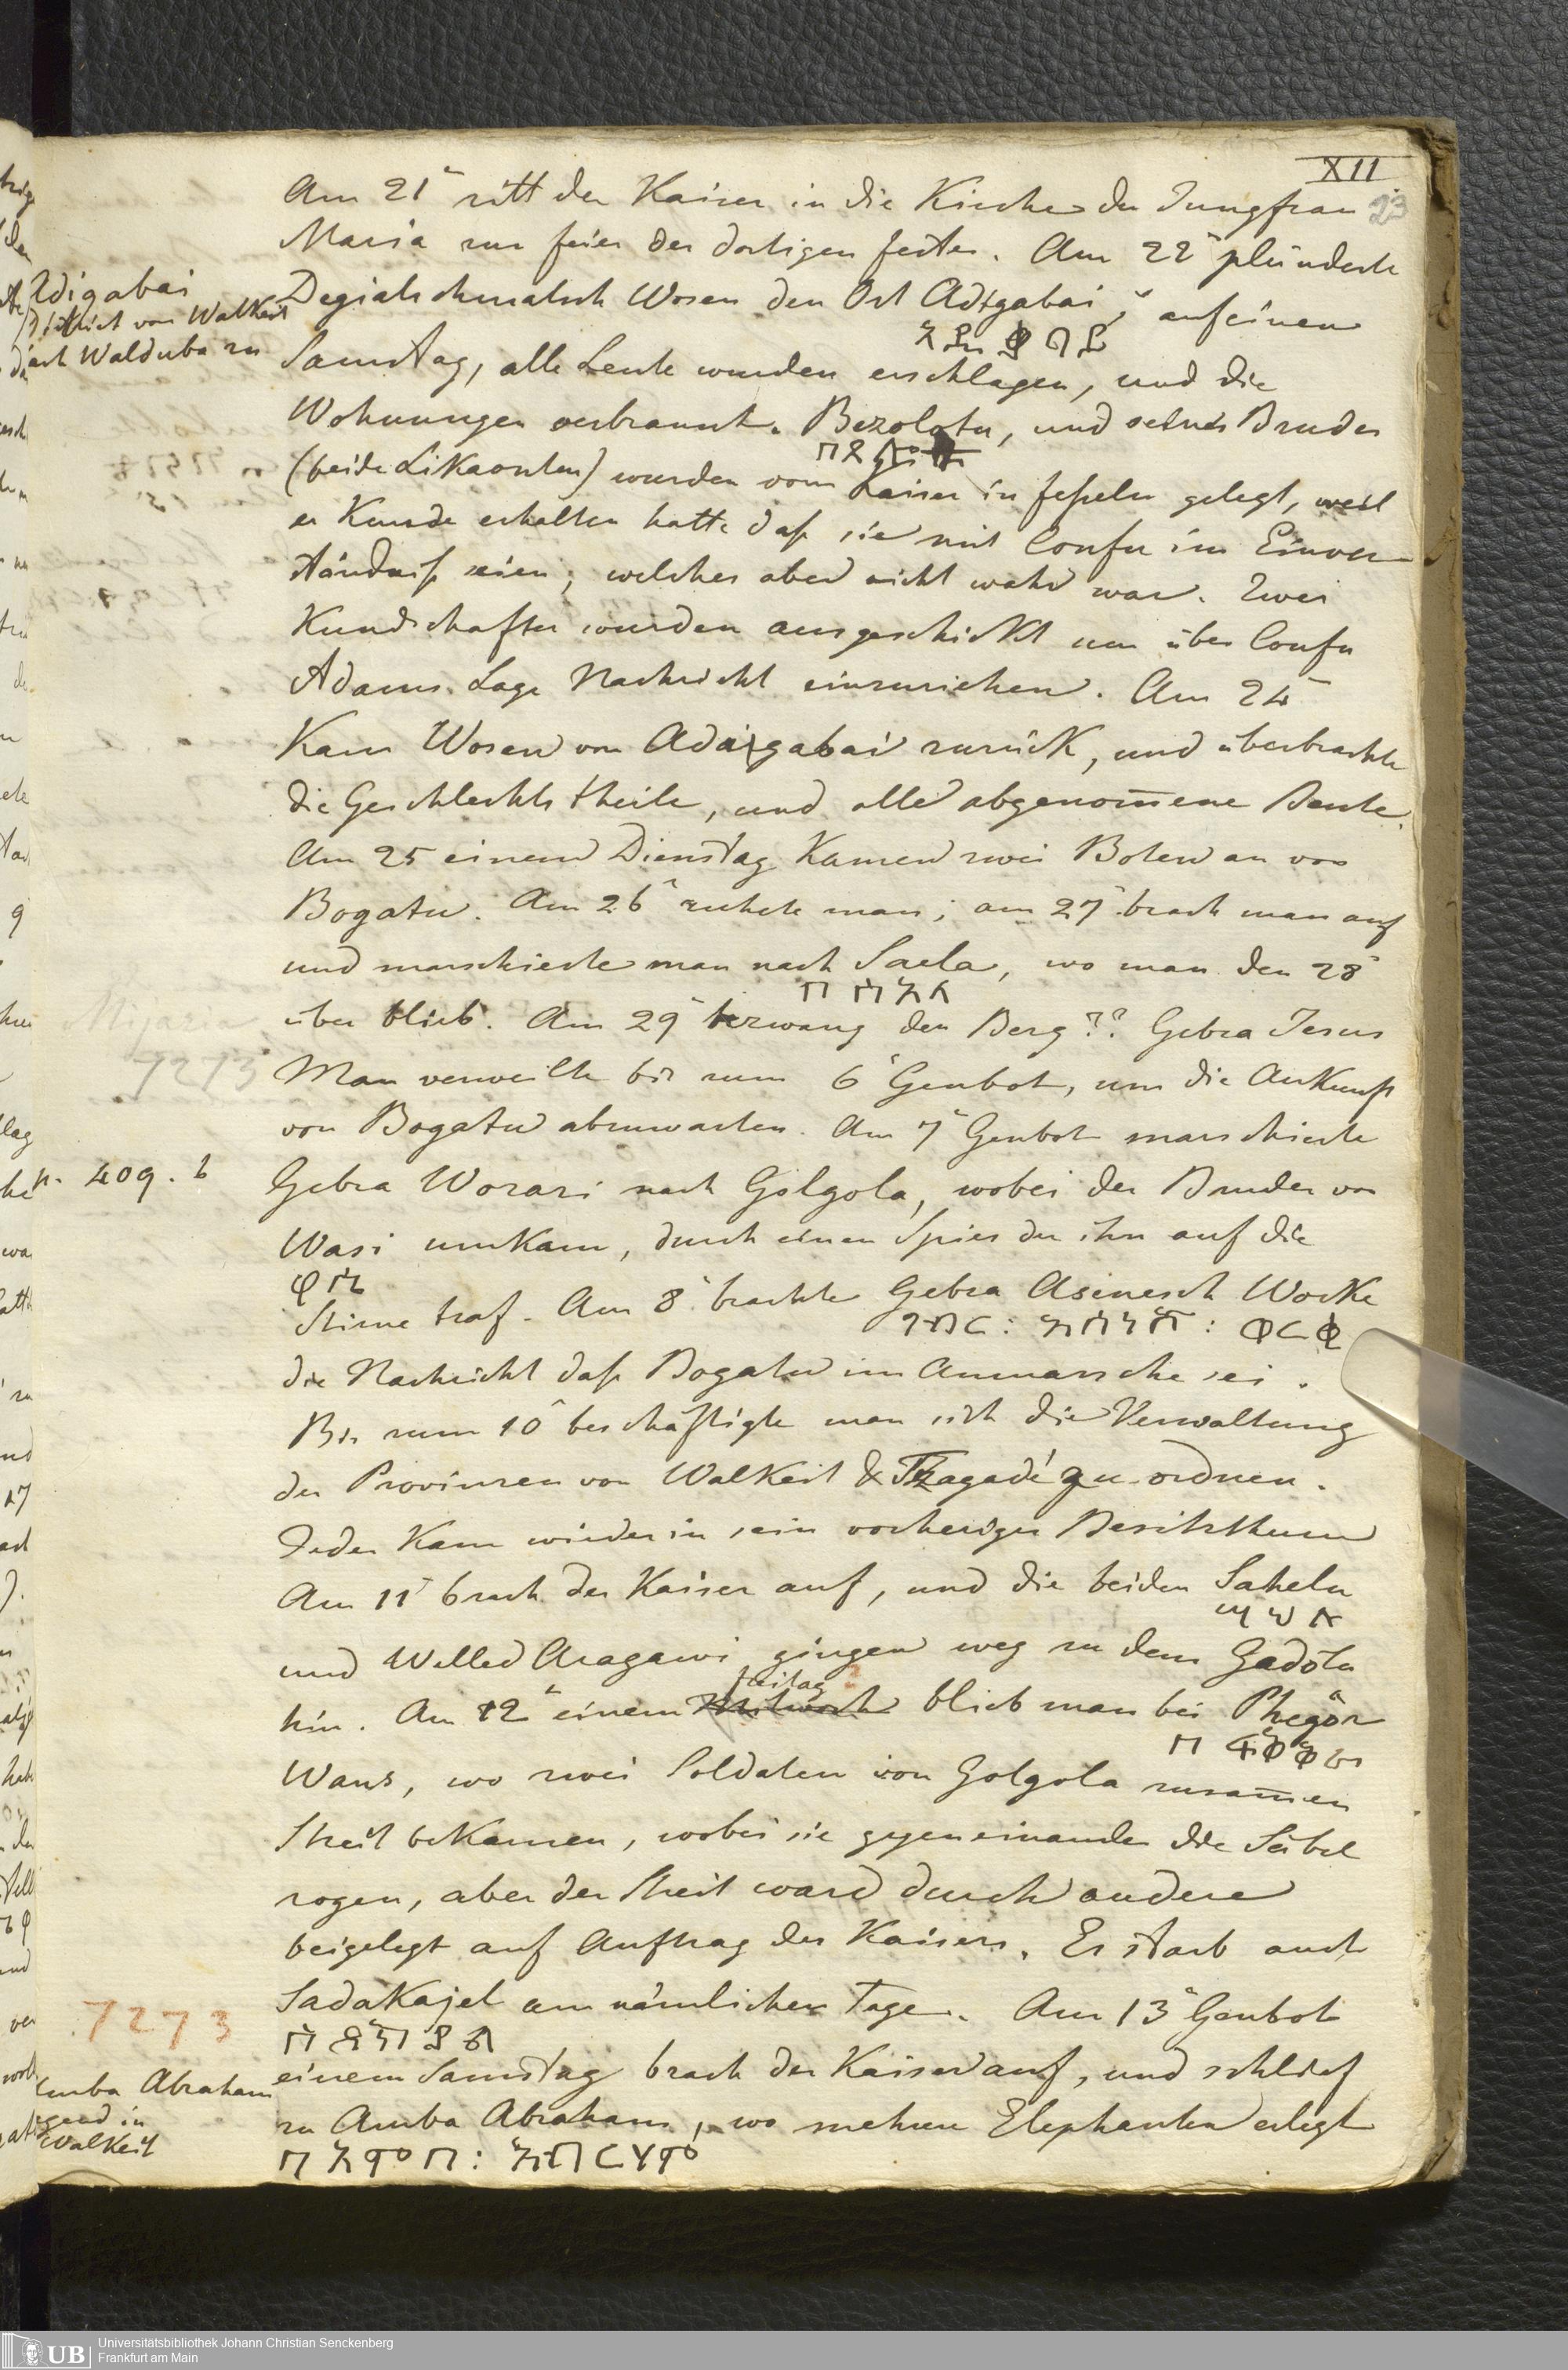 XII
23
Am 21ͭ ritt der Kaiser in die Kirche der Jungfrau
Maria zur feier des dortigen festes. Am 22ͭ plünderte
Adigabai
District von Walkeit
nach Walduba zu
Degiatschmatsch Wosen den Ort Adigabai, auf einen
Samstag, alle Leute wurden erschlagen, und die
Wohnungen verbrannt. Bezolotu, und seines Bruder
(beide Likaonten) wurden vom Kaiser in feßeln gelegt, weil
er Kunde erhalten hatte daß sie mit Confu im Einver
ständniß seien; welches aber nicht wahr war. Zwei
Kundschafter wurden ausgeschickt um über Confu
Adams Lage Nachricht einzuziehen. Am 24ͭ
Kam Wosen von Adaigabai zurück, und überbrachte
die Geschlechtstheile, und alle abgenom̄ene Beute.
Am 25 einem Dienstag Kamen zwei Boten an von
Bogatu. Am 26ͭ ruhete man; am 27ͭ brach man auf
und marschierte man nach Saela, wo man den 28ͭ
በ ሰኣላ
über blieb. Am 29ͭ bezwang den Berg?? Gebra Jesus
7273
Man verweilte bis zum 6ͭ Genbot, um die Ankunft
von Bogatu abzuwarten. Am 7ͭ Genbot marschierte
p. 409. b
Gebra Worari nach Golgola, wobei der Bruder von
Wasi umkam, durch einen Spies der ihn auf die
ዋሲ
Stirne traf. Am 8ͭ brachte Gebra Asinesch Worke
ገብረ: አሲነሽ: ወርቄ
die Nachricht daß Bogatu im Anmarsche sei.
Bis zum 10ͭ beschäftigte man sich die Verwaltung
der Provinzen von Walkeit & Tzagadé zu ordnen.
Jeder Kam wieder in sein voriges Besitzthum
Am 11ͭ brach der Kaiser auf, und die beiden Sahelu
ሣህሉ
und Welled Aragawi gingen weg zu dem Gadotu
freitag
hin. Am 12ͭ einem Mitwoch blieb man bei Phegör
Wans, wo zwei Soldaten von Golgola zusam̄en
Streit bekamen, wobei sie gegeneinander die Säbel
zogen, aber der Streit ward durch andere
beigelegt auf Auftrag des Kaisers. Es starb auch
Sadakajel am nämlichen Tage. Am 13ͭ Genbot
7273
einem Samstag brach der Kaiser auf, und schlief
Amba Abraham
gend in
Walkeit
zu Amba Abraham, wo mehrere Elephanten erlegt
በ አምባ: አብርሃም
UB
Universitätsbibliothek Johann Christian Senckenberg
Frankfurt am Main